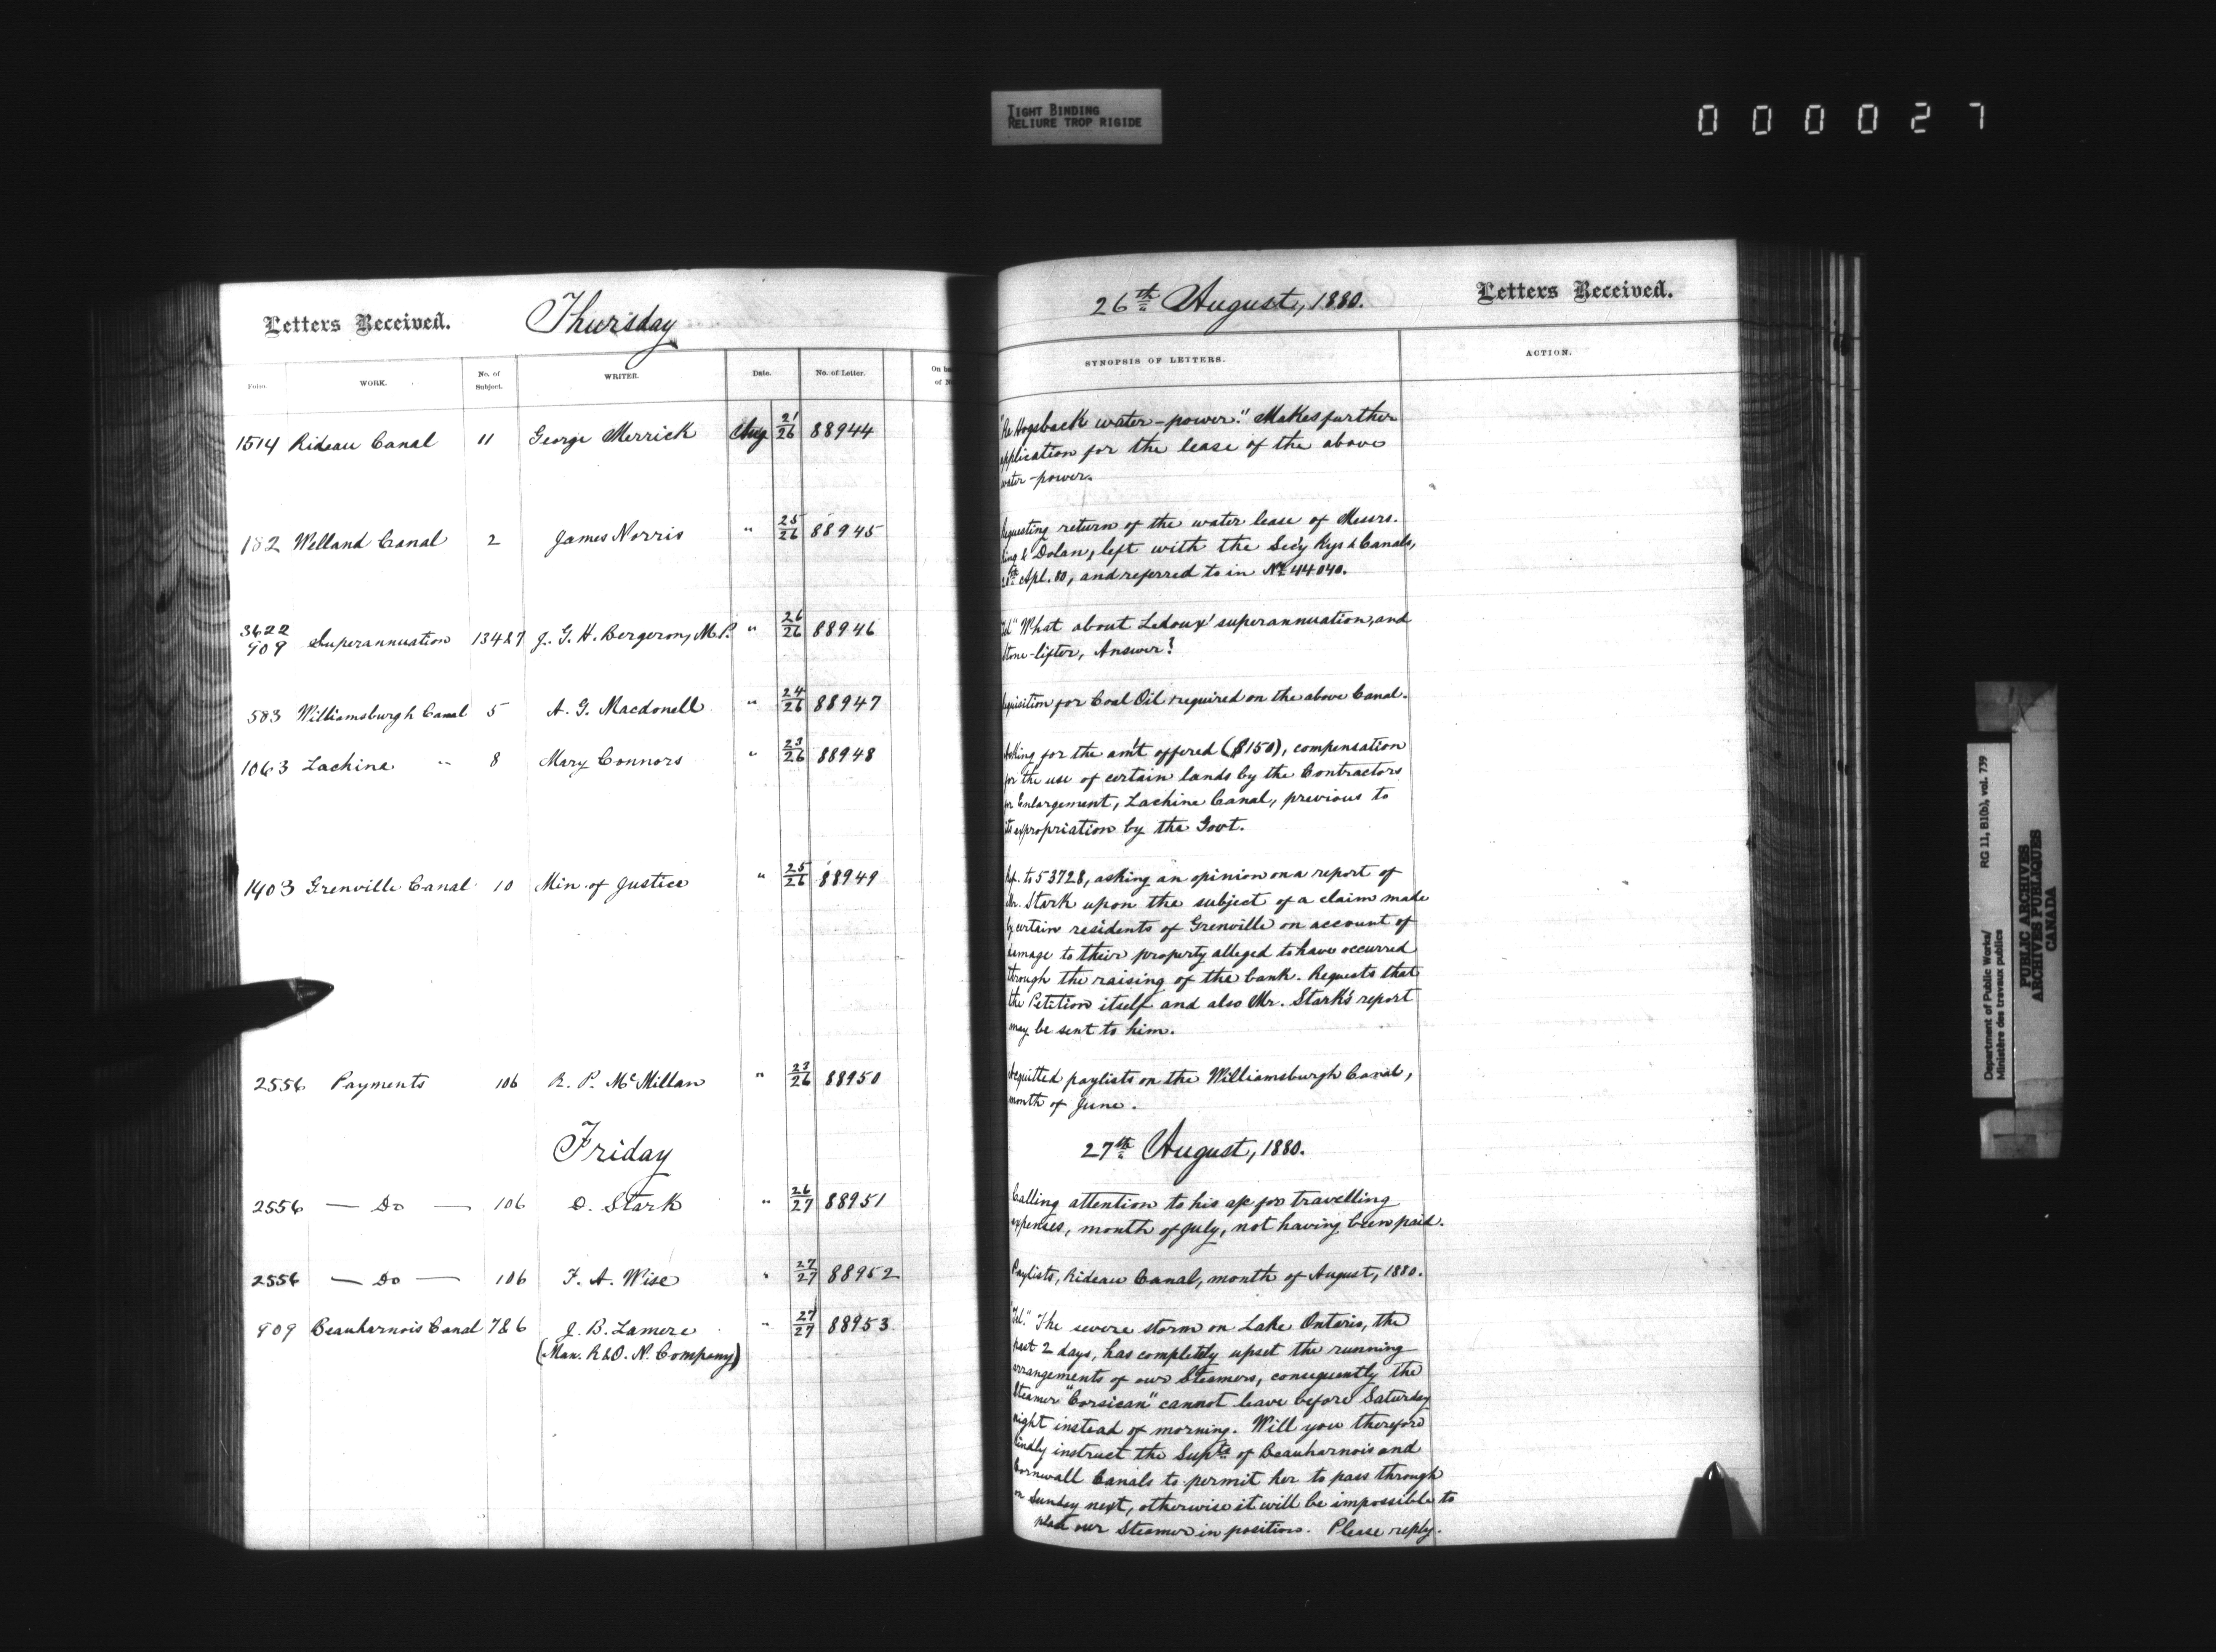 TIGHT BINDING
RELIURE TROP RIGIDE
000027
Letters Received. Thursday
Folio. WORK. No. of Subject. WRITER. Date. No. of Letter. On
of
1514 Rideau Canal 11 George Merrick Aug 21/26 88944
182 Welland Canal 2 James Norris " 25/26 88945
3622
909 Superannuation 134&7 J. G. H. Bergeron, M.P. " 26/26 88946
583 Williamsburgh Canal 5 A. G. Macdonell " 24/26 88947
1063 Lachine " 8 Mary Connors " 23/26 88948
1403 Grenville Canal 10 Min. of Justice " 25/26 88949
2556 Payments 106 R. P. McMillan " 23/26 88950
Friday
2556 — Do — 106 D. Stark " 26/27 88951
2556 — Do — 106 F. A. Wise " 27/27 88952
909 Beauharnois Canal 7&6 J. B. Lamere " 27/27 88953
(Man. R&O. N. Company)
26th August, 1880. Letters Received.
SYNOPSIS OF LETTERS. ACTION.
"Re Hogsback water-power." Makes further
application for the lease of the above
water-power.
Requesting return of the water lease of Messrs.
King & Dolan, left with the Secy Rys & Canals,
Apl. 80, and referred to in No. 44040.
"Tel" What about Ledoux' superannuation, and
Stone-lifter, Answer?
Requisition for Coal Oil required on the above Canal.
Asking for the am't offered ($150), compensation
for the use of certain lands by the Contractors
for Enlargement, Lachine Canal, previous to
its expropriation by the Govt.
Ref. to 53728, asking an opinion on a report of
Mr. Stark upon the subject of a claim made
by certain residents of Grenville on account of
damage to their property alleged to have occurred
through the raising of the bank. Requests that
the Petition itself and also Mr. Stark's report
may be sent to him.
Acquitted paylists on the Williamsburgh Canal,
month of June.
27th August, 1880.
Calling attention to his a/c for travelling
expenses, month of July, not having been paid.
Paylists, Rideau Canal, month of August, 1880.
"Tel." The severe storm on Lake Ontario, the
past 2 days, has completely upset the running
arrangements of our Steamers, consequently the
Steamer "Corsican" cannot leave before Saturday
night instead of morning. Will you therefore
kindly instruct the Supts of Beauharnois and
Cornwall Canals to permit her to pass through
on Sunday next, otherwise it will be impossible to
place our Steamer in position. Please reply.
Department of Public Works/ RG 11, B1(b), vol. 739
Ministère des travaux publics
PUBLIC ARCHIVES
ARCHIVES PUBLIQUES
CANADA